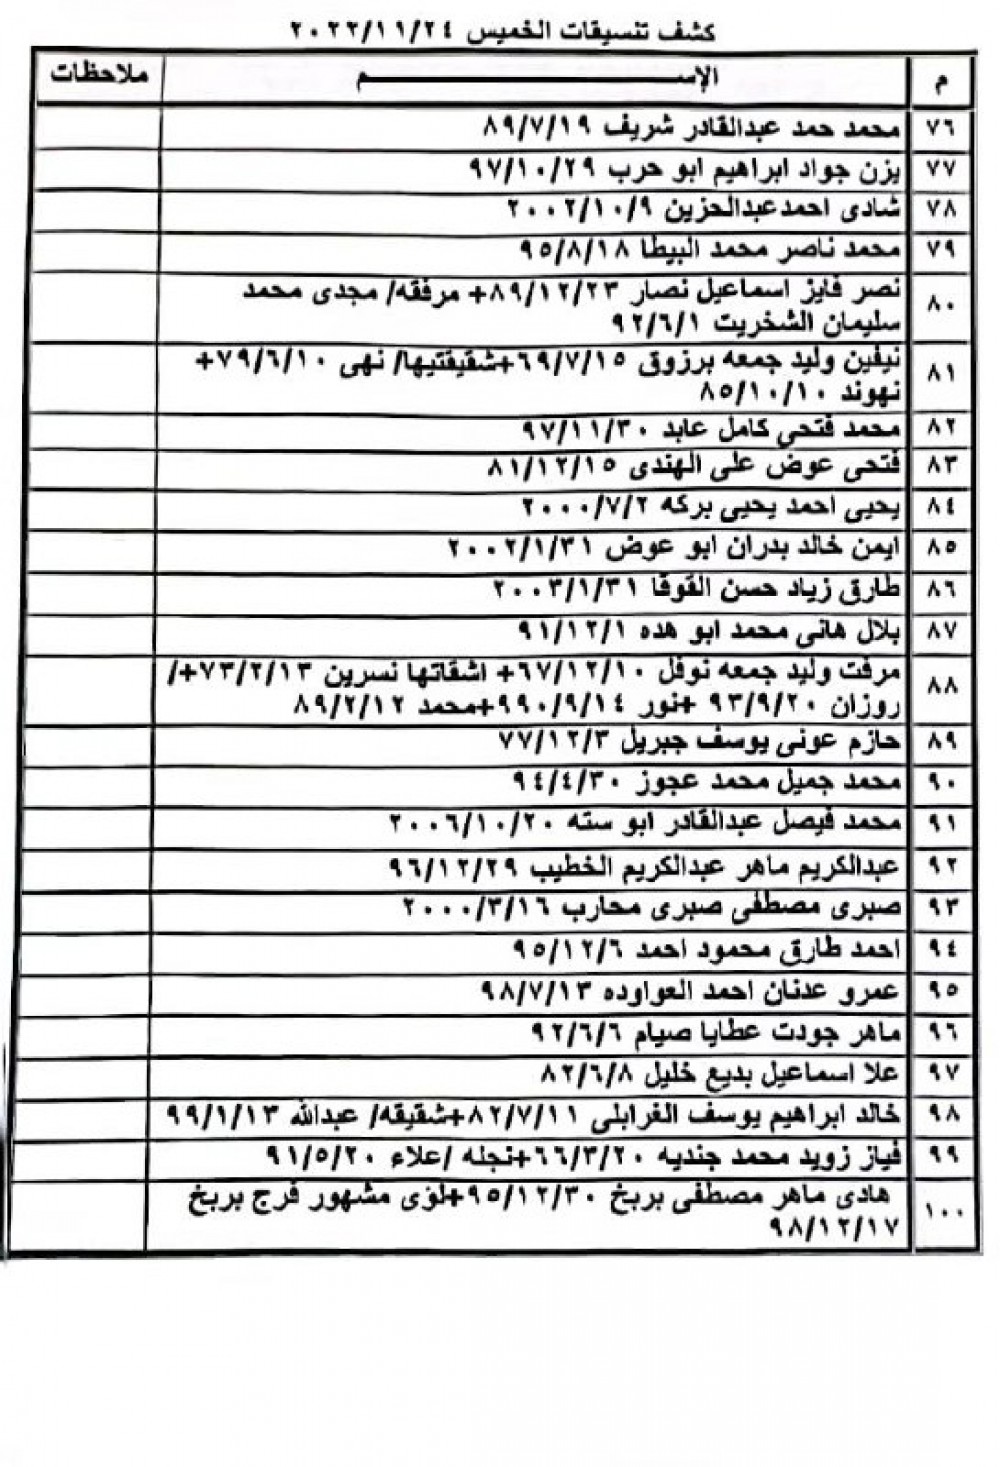 كشف تنسيقات الخميس ٢٠٢٢/١١/٢٤
م الإســـــــــــــم ملاحظات
٧٦ محمد حمد عبدالقادر شريف ٨٩/٧/١٩
٧٧ يزن جواد ابراهيم ابو حرب ٩٧/١٠/٢٩
٧٨ شادى احمدعبدالحزين ٢٠٠٢/١٠/٩
٧٩ محمد ناصر محمد البيطا ٩٥/٨/١٨
٨٠ نصر فايز اسماعيل نصار ٨٩/١٢/٢٣+ مرفقه/ مجدى محمد
سليمان الشخريت ٩٢/٦/١
٨١ نيفين وليد جمعه برزوق ٦٩/٧/١٥+شقيقتيها/ نهى ٧٩/٦/١٠+
نهوند ٨٥/١٠/١٠
٨٢ محمد فتحى كامل عابد ٩٧/١١/٣٠
٨٣ فتحى عوض على الهندى ٨١/١٢/١٥
٨٤ يحيى احمد يحيى بركه ٢٠٠٠/٧/٢
٨٥ ايمن خالد بدران ابو عوض ٢٠٠٢/١/٣١
٨٦ طارق زياد حسن القوقا ٢٠٠٣/١/٣١
٨٧ بلال هانى محمد ابو هده ٩١/١٢/١
٨٨ مرفت وليد جمعه نوفل ٦٧/١٢/١٠+ اشقاتها نسرين ٧٣/٢/١٣+/
روزان ٩٣/٩/٢٠ +نور ٩٩٠/٩/١٤+محمد ٨٩/٢/١٢
٨٩ حازم عونى يوسف جبريل ٧٧/١٢/٣
٩٠ محمد جميل محمد عجوز ٩٤/٤/٣٠
٩١ محمد فيصل عبدالقادر ابو سته ٢٠٠٦/١٠/٢٠
٩٢ عبدالكريم ماهر عبدالكريم الخطيب ٩٦/١٢/٢٩
٩٣ صبرى مصطفى صبرى محارب ٢٠٠٠/٣/١٦
٩٤ احمد طارق محمود احمد ٩٥/١٢/٦
٩٥ عمرو عدنان احمد العواوده ٩٨/٧/١٣
٩٦ ماهر جودت عطايا صيام ٩٢/٦/٦
٩٧ علا اسماعيل بديع خليل ٨٢/٦/٨
٩٨ خالد ابراهيم يوسف الغرابلى ٨٢/٧/١١+شقيقه/ عبدالله ٩٩/١/١٣
٩٩ فياز زويد محمد جنديه ٦٦/٣/٢٠+نجله /علاء ٩١/٥/٢٠
١٠٠ هادى ماهر مصطفى بربخ ٩٥/١٢/٣٠+لؤى مشهور فرج بربخ
٩٨/١٢/١٧